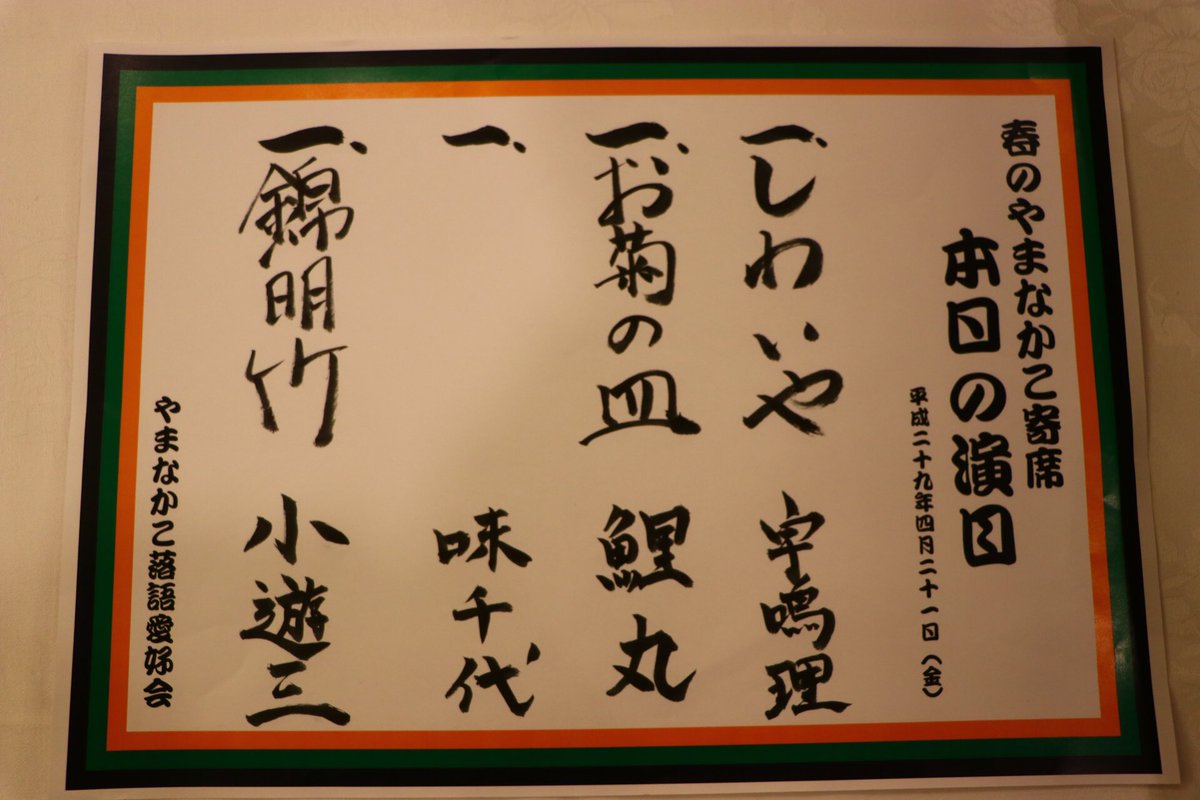 春のやまなかこ寄席
本日の演目
平成二十九年四月二十一日(金)
一、しわいや 宇鳴理
一、お菊の皿 鯉丸
一、 味千代
一、錦明竹 小遊三
やまなかこ落語愛好会